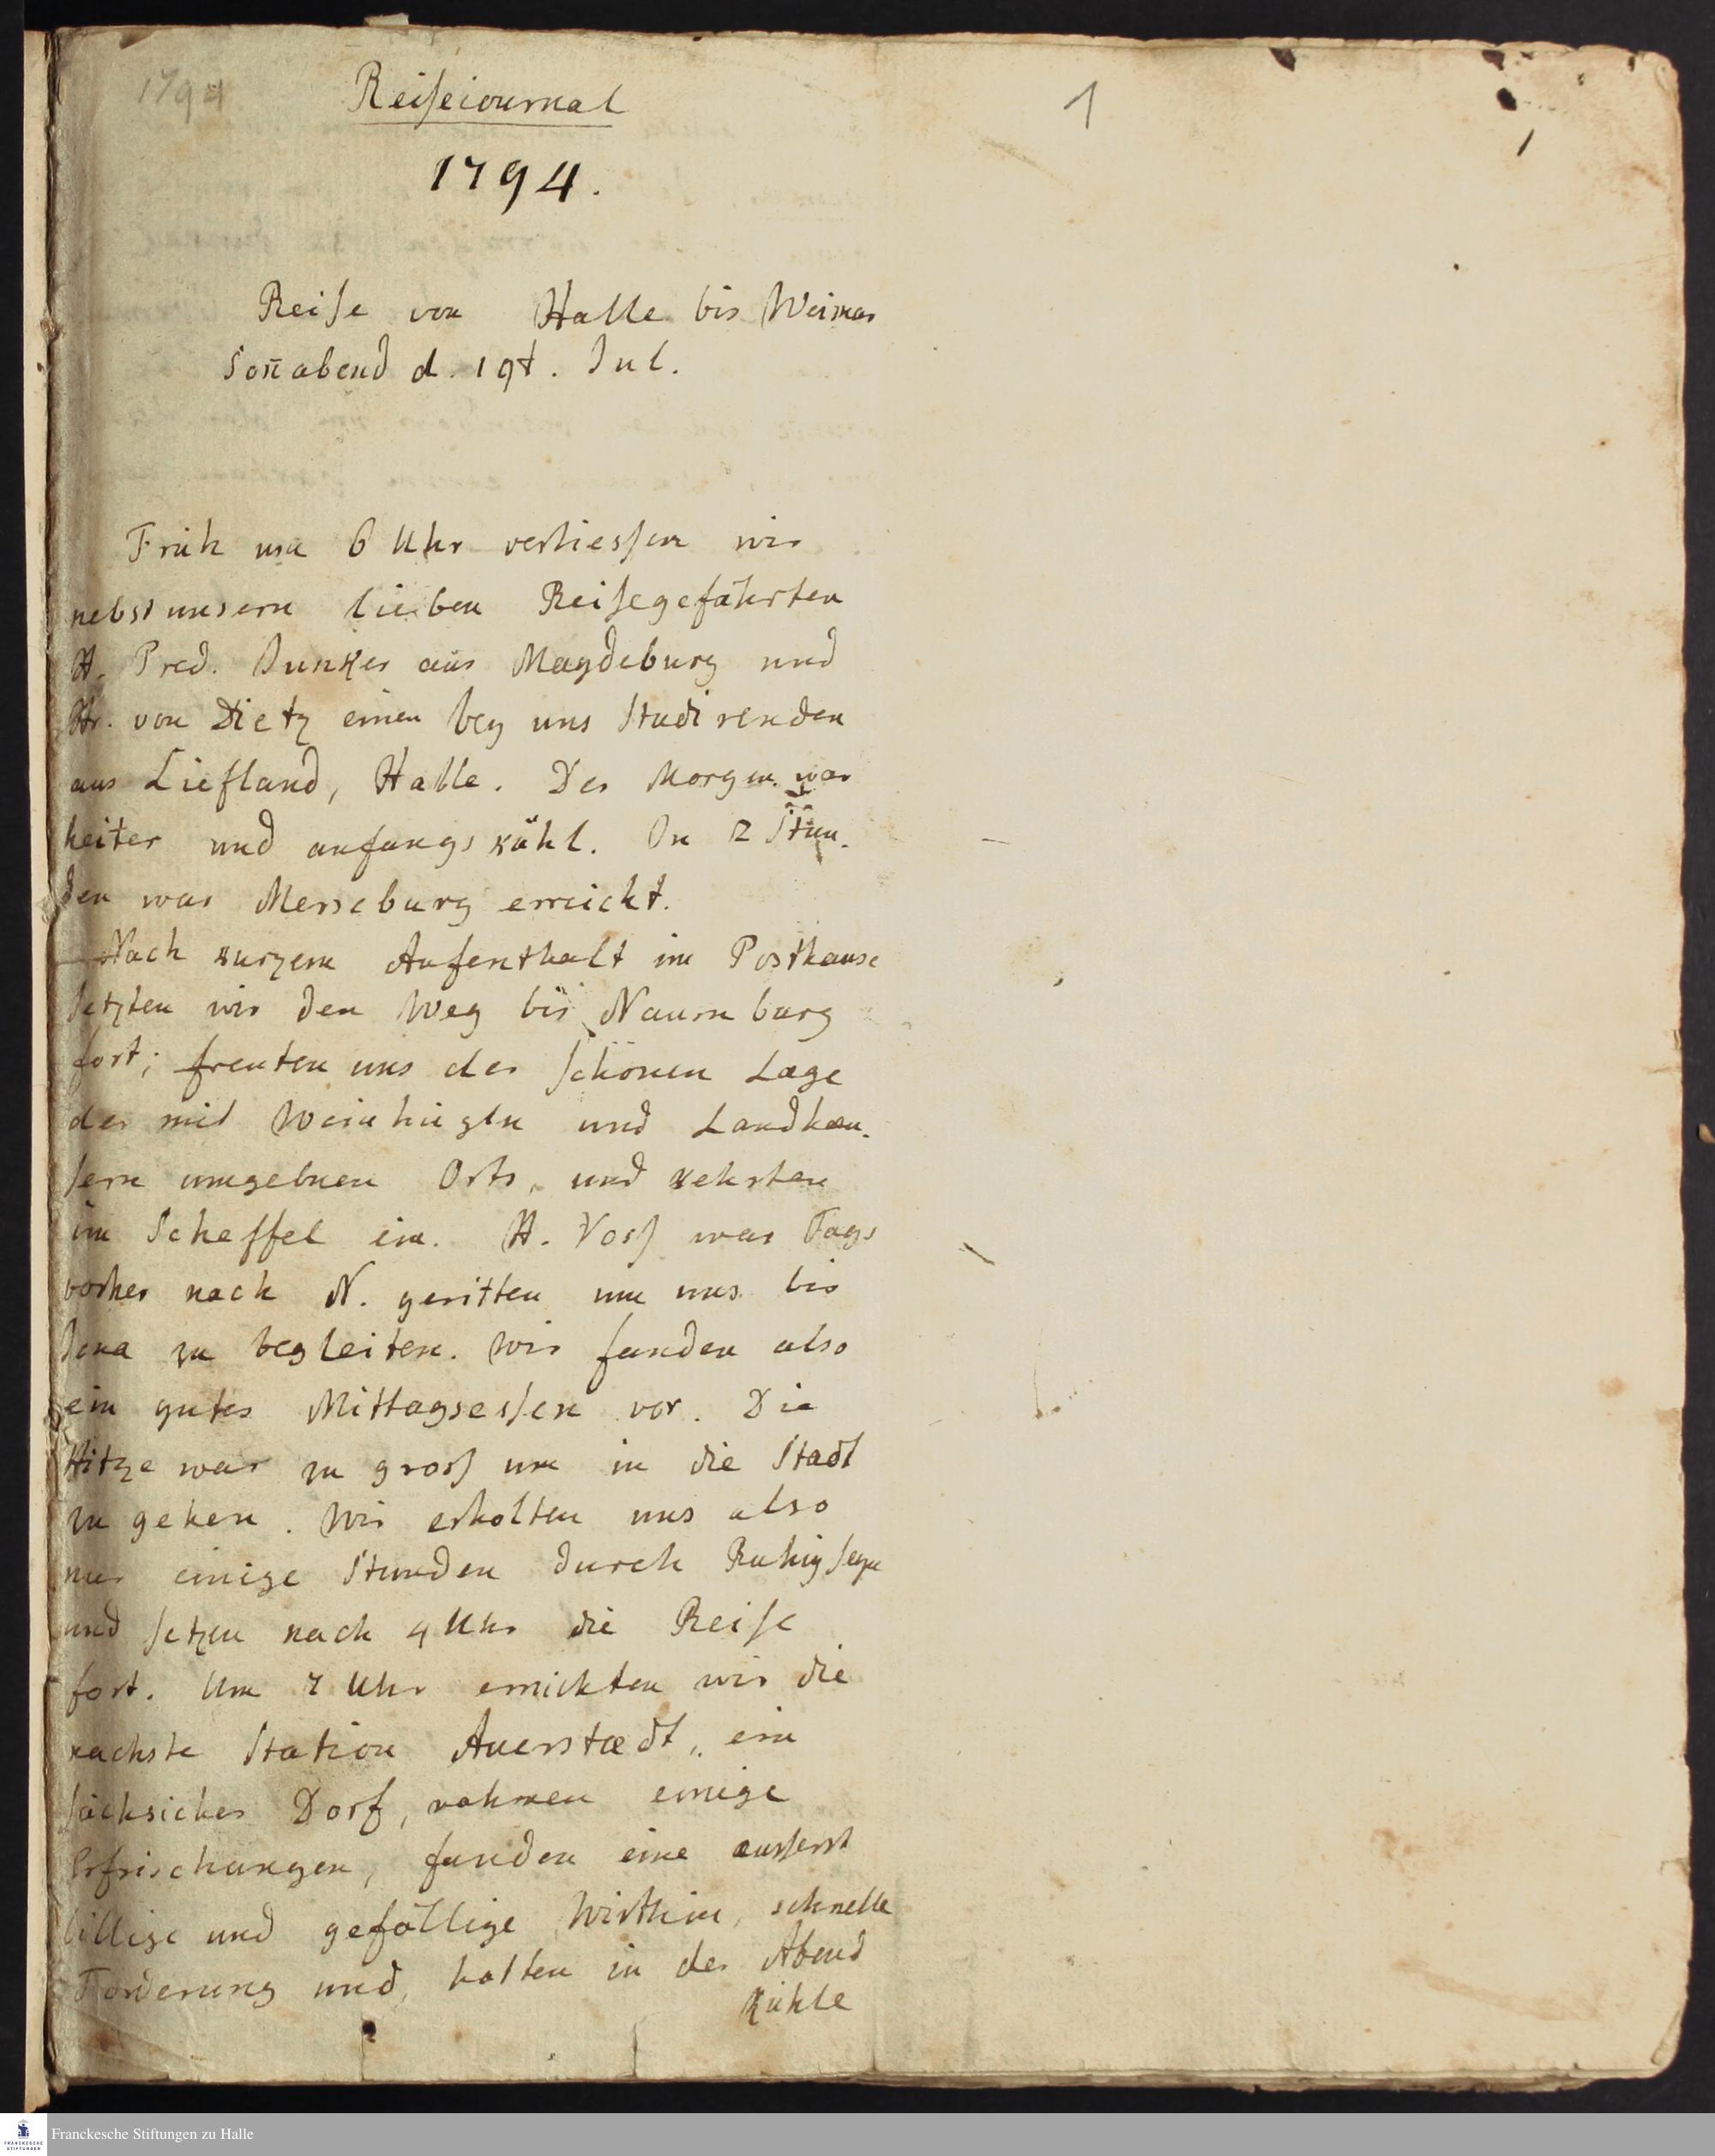 1794
Reisejournal
1
1794.
1
Reise von Halle bis Weimar
Soñabend d. 19t. Jul.
Früh um 6 Uhr verliessen wir
nebst unserm lieben Reisegefährten
H. Pred. Junker aus Magdeburg und
Hr. von Dietz einen bey uns Studirenden
aus Liefland, Halle. Der Morgen war
heiter und anfangs kühl. In 2 Stun-
den war Merseburg erreicht.
Nach kurzem Aufenthalt im Posthause
setzten wir den Weg bis Naumburg
fort; freuten uns der schönen Lage
des mit Weinhügeln und Landhäu-
sern umgebnen Orts, und kehrten
im Scheffel ein. H. Voss war Tags
vorher nach N. geritten um uns bis
Jena zu begleiten. Wir fanden also
ein gutes Mittagsessen vor. Die
Hitze war zu gross um in die Stadt
zu gehen. Wir erholten uns also
nur einige Stunden durch Ruhig seyn
und setzen nach 4 Uhr die Reise
fort. Um 7 Uhr erreichten wir die
nachste Station Auerstædt, ein
sächsiches Dorf, nahmen einige
Erfrischungen, fanden eine æusserst
billige und gefällige Wirthin, schnelle
Forderung und, hatten in der Abend
kühle
Franckesche Stiftungen zu Halle